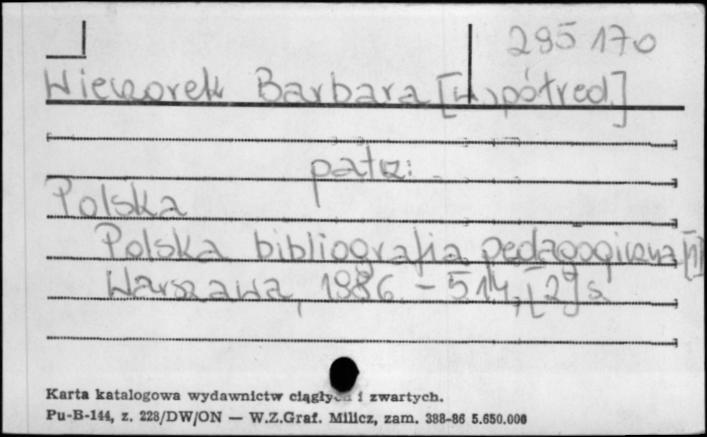 295 170
Wieczorek Barbara [współred.]
patrz:
Polska
Polska bibliografia pedagogiczna
Warszawa, 1986. - 514, [2] s.
Karta katalogowa wydawnictw ciągłych i zwartych.
Pu-B-144, z. 228/DW/ON — W.Z.Graf. Milicz, zam. 388-86 5.650.000